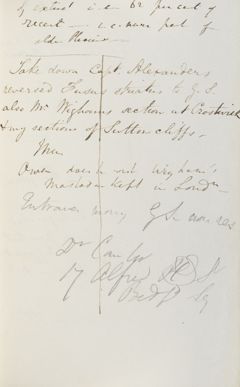 by extent i.e. 62 per cent of
recent — i.e. newer part of
older Pliocene —
Take down Capt. Alexander's
reversed Fusus striatus to G. S.
also Mr Wigham's section at Crostwick
& my sections of Sutton cliffs.
Mem
Owen Wigham's
Mastodon left in Londn
Entrance money G. S.
Dr
17 Alfred
Bedfd Sq